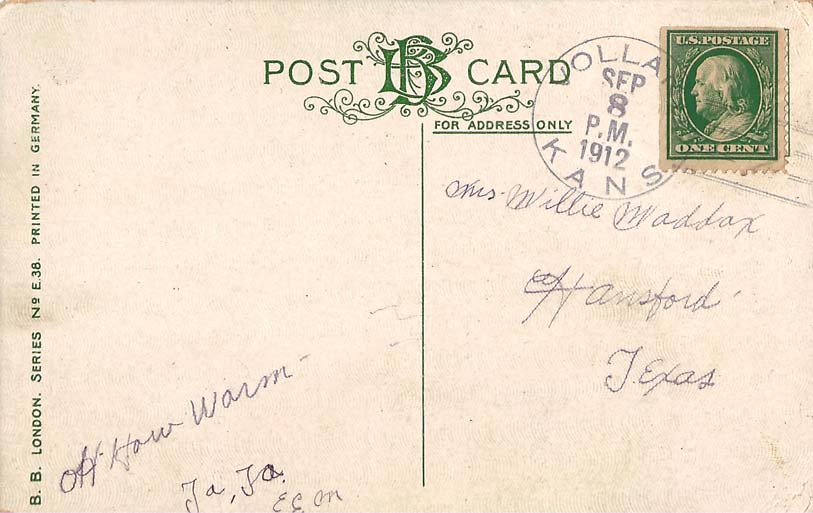 POST BB CARD
FOR ADDRESS ONLY
SEP
8
P.M.
1912
KANS
U.S. POSTAGE
ONE CENT
Mrs. Willie Maddox
Hansford
Texas
B. B. LONDON. SERIES Nº E.38. PRINTED IN GERMANY.
Oh How Warm
Ta, Ta.
EEM